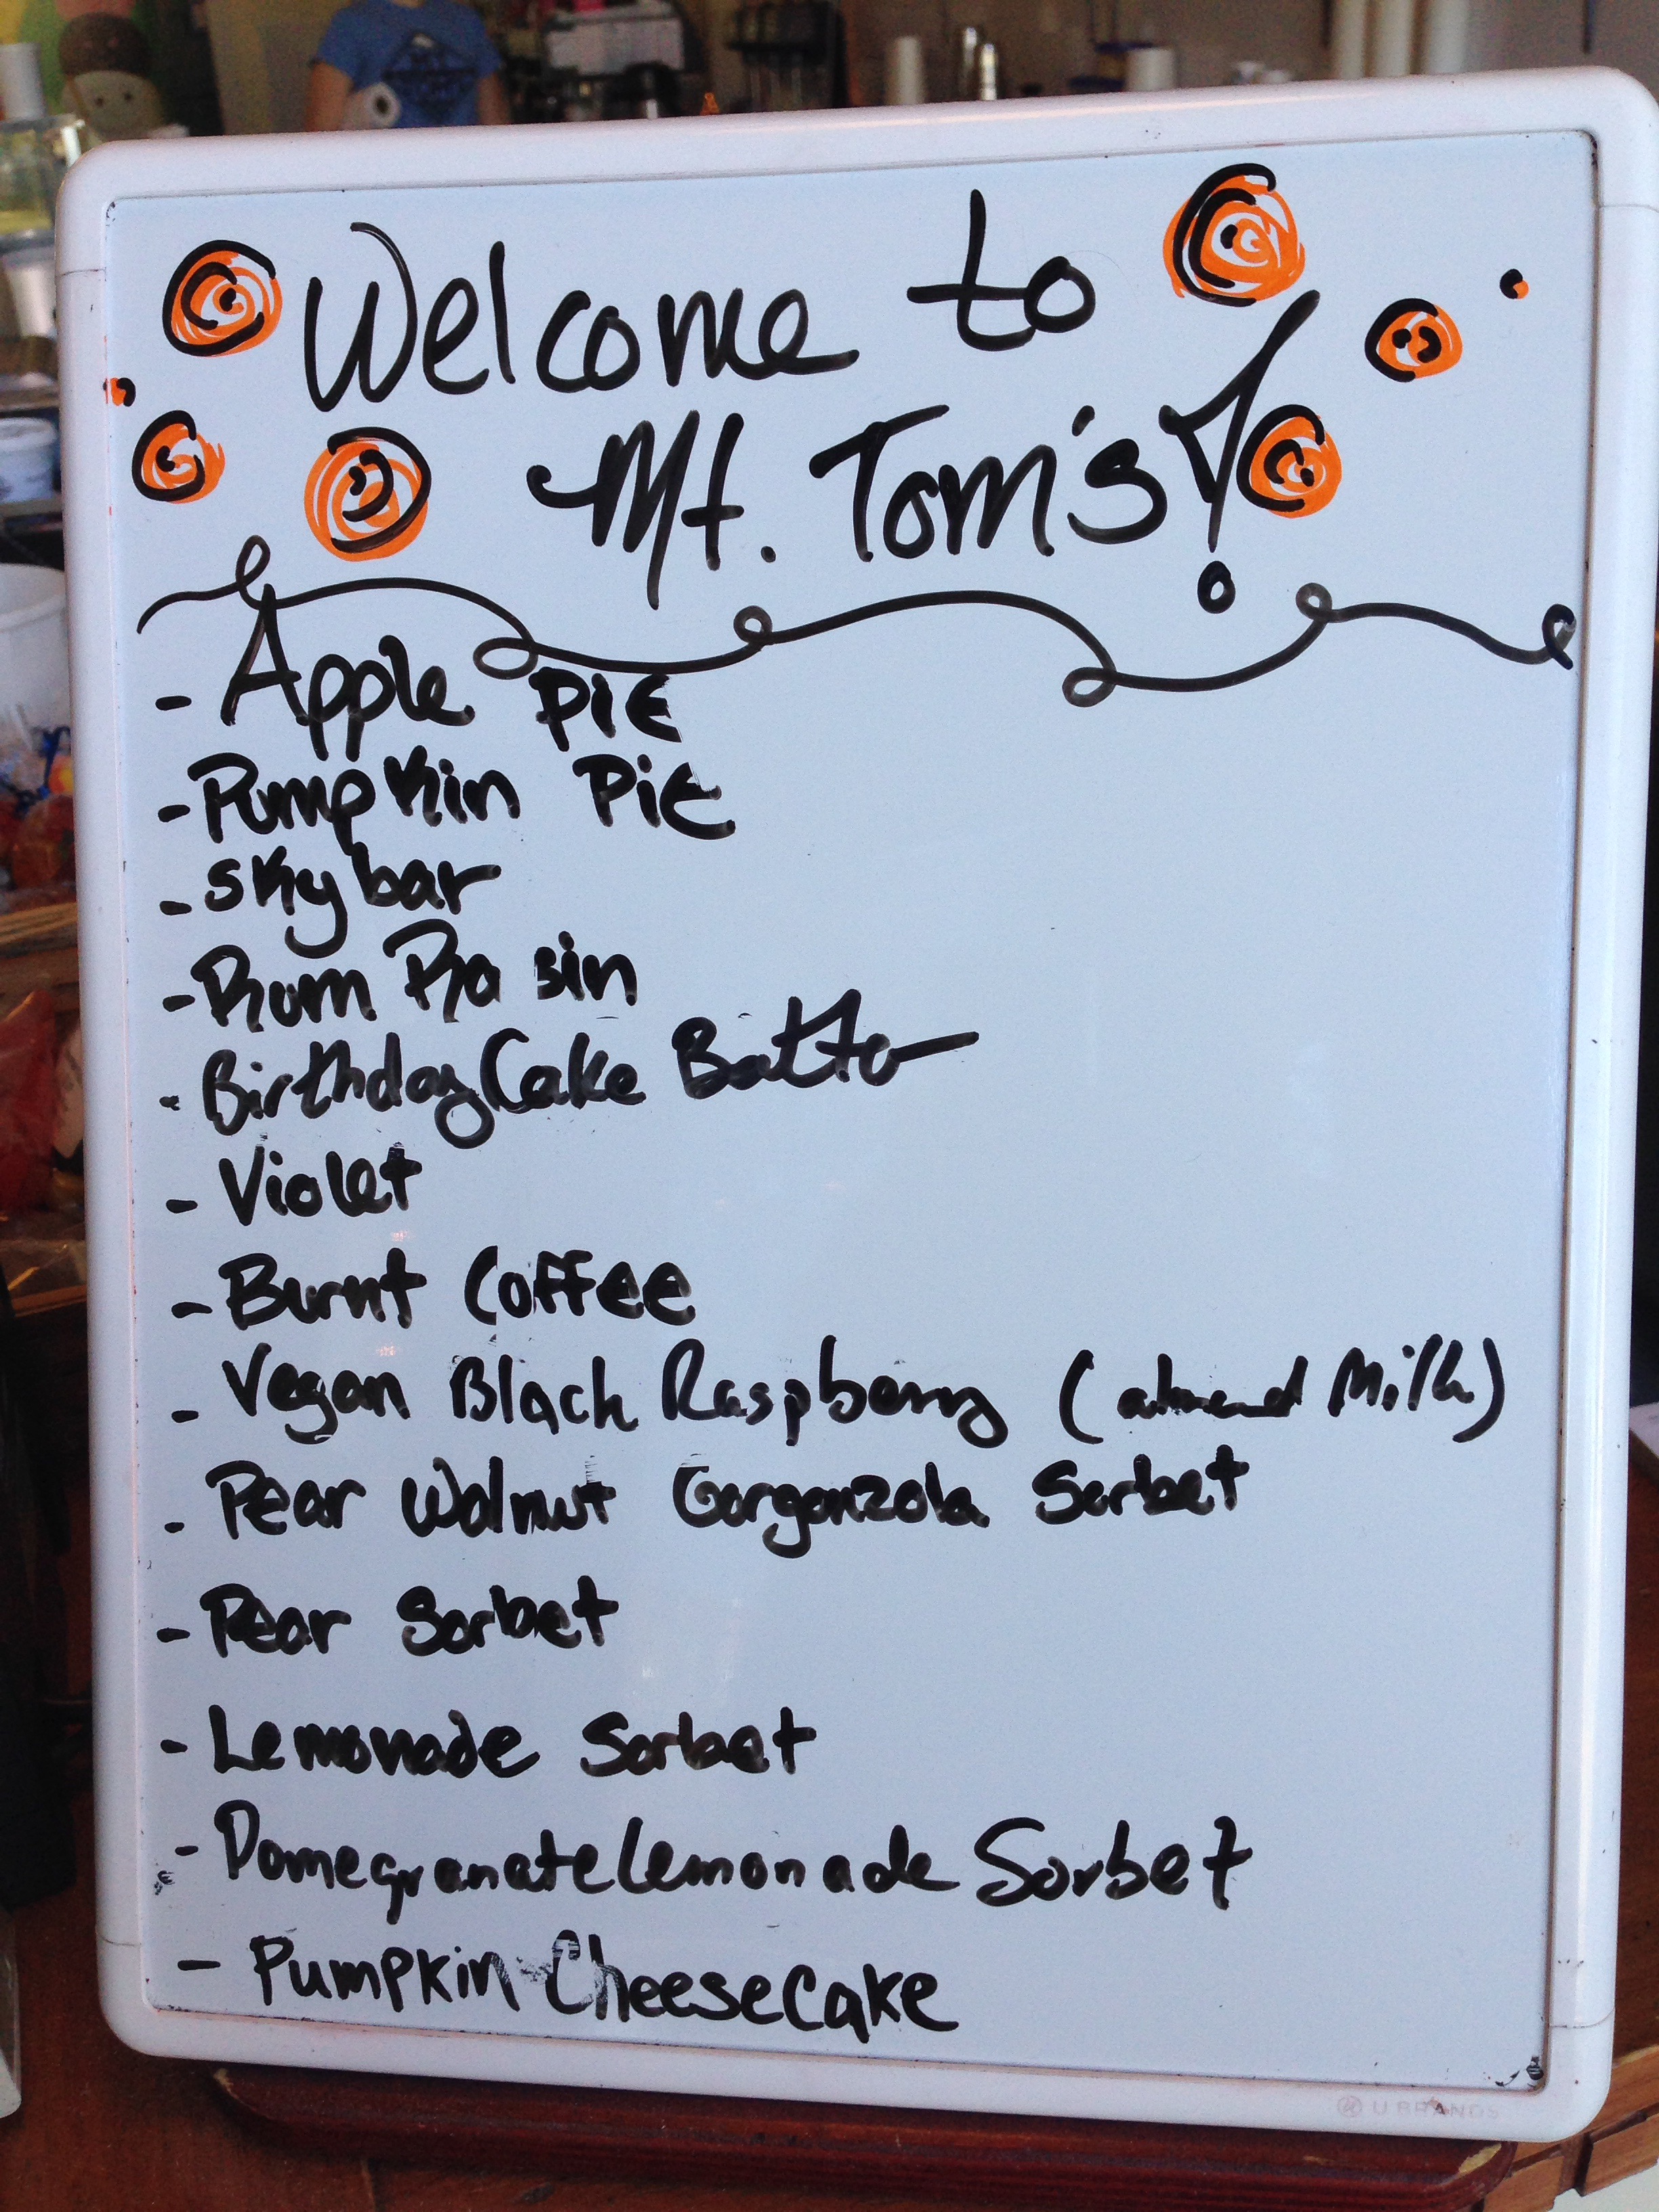 Welcome to
Mt. Tom's!
- Apple PiE
- Pumpkin PiE
- skybar
- Rum Raisin
- Birthday Cake Batter
- Violet
- Burnt Coffee
- Vegan Black Raspberry (almond Milk)
- Pear Walnut Gorgonzola Sorbet
- Pear Sorbet
- Lemonade Sorbet
- Pomegranate lemonade Sorbet
- Pumpkin CheeseCake
U BRANDS